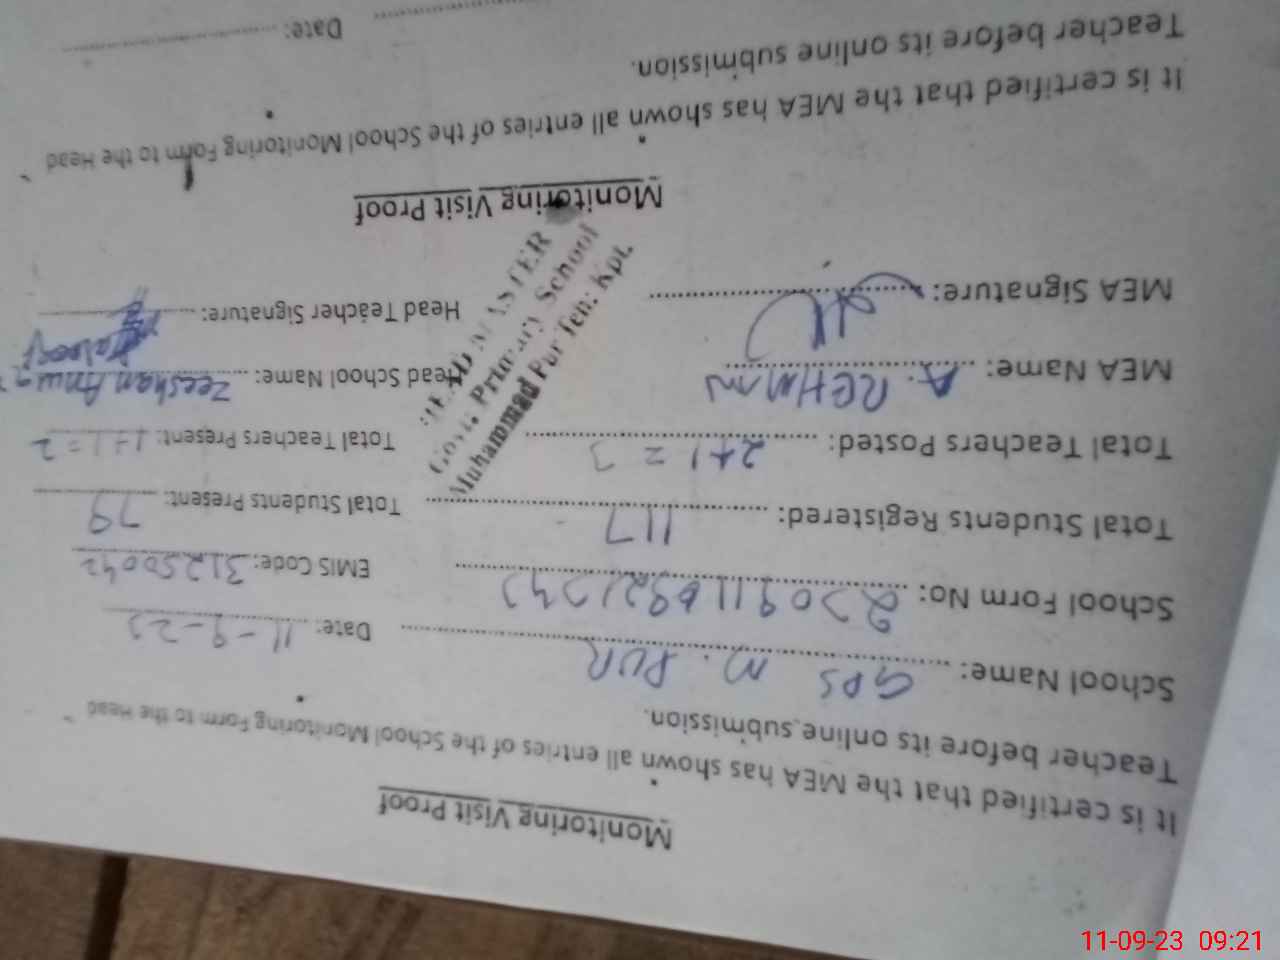 Monitoring Visit Proof
It is certified that the MEA has shown all entries of the School Monitoring Form to the Head
Teacher before its online submission.
School Name: GPS M. PUR Date: 11-9-23
School Form No: EMIS Code: 31250042
Total Students Registered: 117 Total Students Present: 79
Total Teachers Posted: 2+1=3 Total Teachers Present: 1+1=2
MEA Name: A. REHMAN Head School Name: Zeeshan
MEA Signature: Head Teacher Signature:
HEAD MASTER
Govt. Primary School
Muhammad Pur Teh: Kpt.
Monitoring Visit Proof
It is certified that the MEA has shown all entries of the School Monitoring Form to the Head
Teacher before its online submission.
Date:
11-09-23 09:21